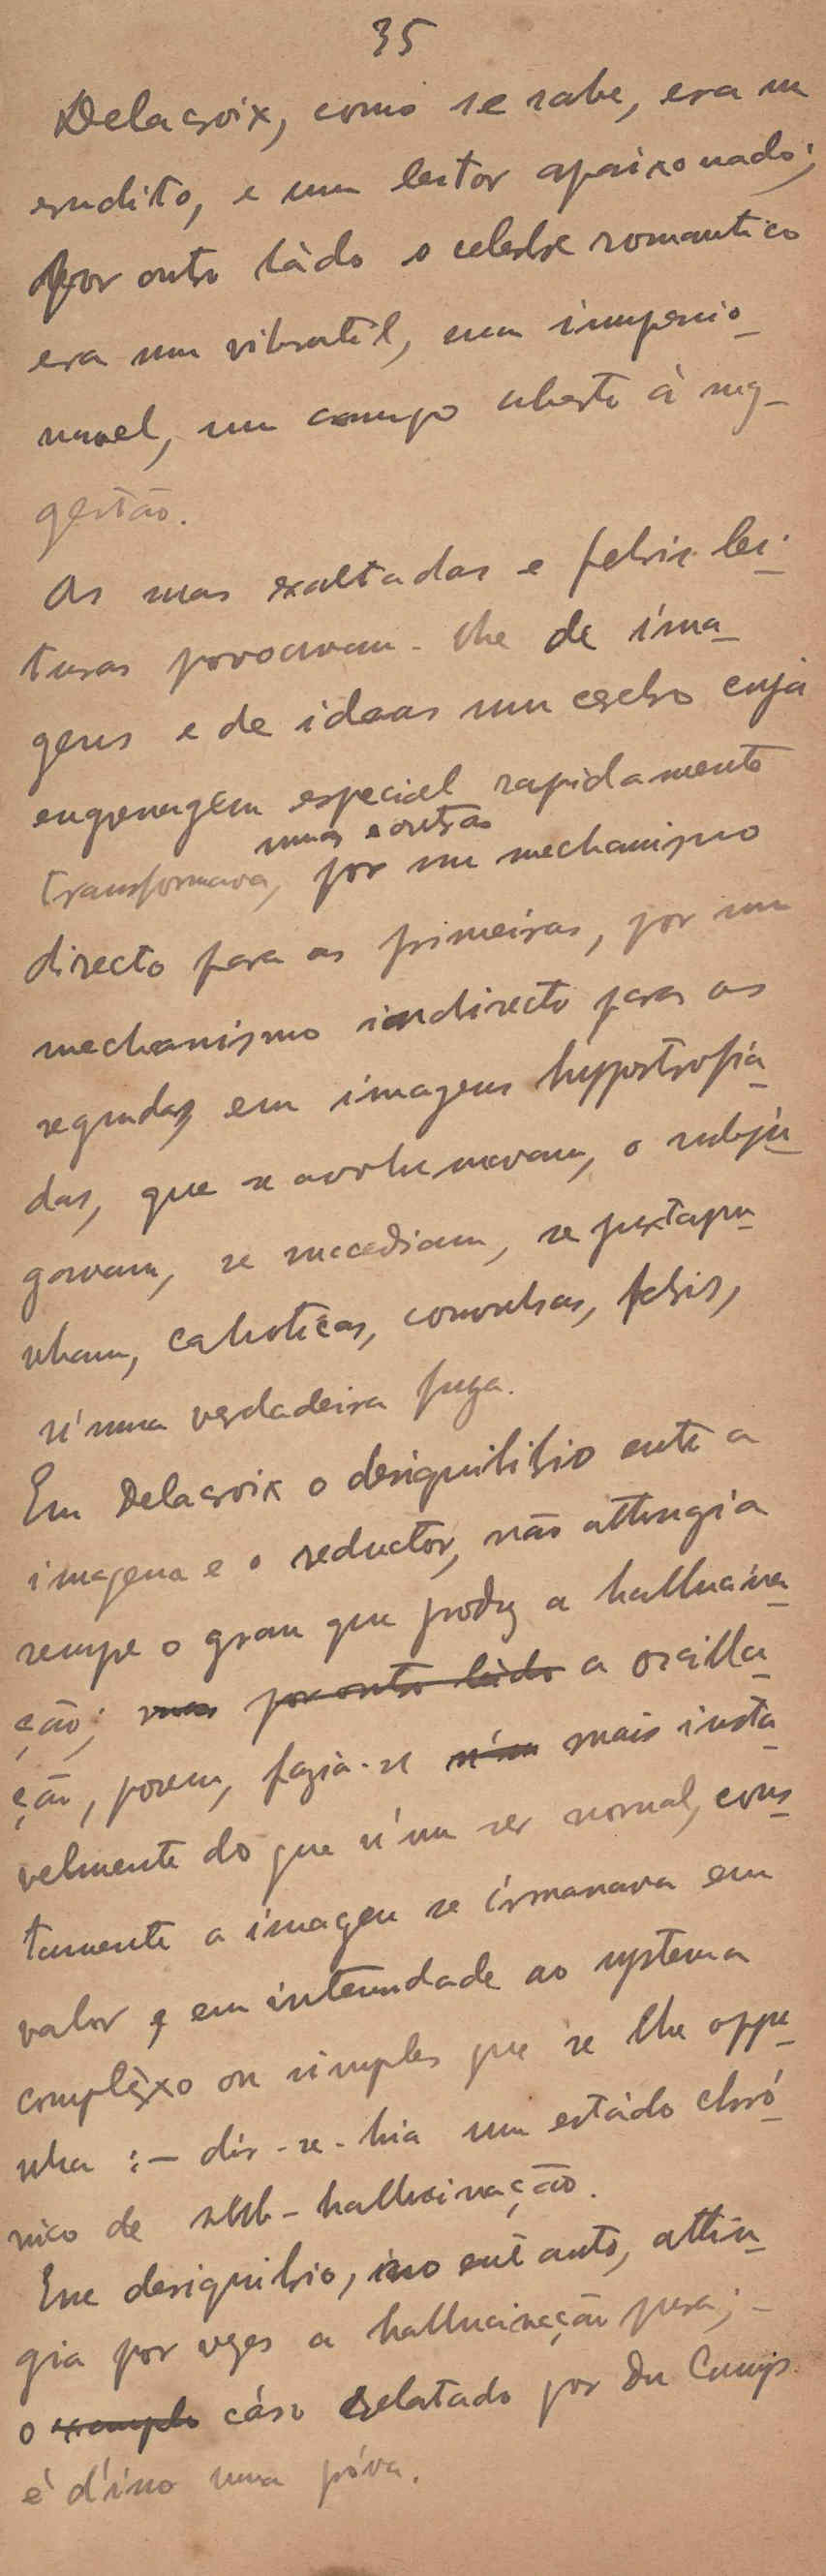 35
Delacroix, como se sabe, era um
erudito, e um leitor apaixonado;
por outro ládo o celebre romantico
era um vibratil, um impressio-
navel, um campo aberto á sug-
gestão.
As suas exaltadas e febris lei-
turas povoavam-lhe de ima-
gens e de ideas um cerebro cuja
engrenagem especial rapidamente
umas e outras
transformava, por um mechanismo
directo para as primeiras, por um
mechanismo indirecto para as
segundas, em imagens hypertrofia-
das, que se avolumavam, se subju-
gavam, se succediam, se juxtapu-
nham, cahoticas, convulsas, febris,
n'uma verdadeira fuga.
Em Delacroix o desiquilibrio entre a
imagem e o reductor, não attingia
sempre o grau que produz a hallucina-
ção; mas por outro ládo a oscilla-
ção, porem, fazia-se n'um mais insta-
velmente do que n'um ser normal, cons-
tamente a imagem se irmanava em
valor e em intensidade ao systema
complèxo ou simples que se lhe oppu-
nha :— dir-se-hia um estádo chró-
nico de sub-hallucinação.
Esse desiquilibrio, no entanto, attin-
gia por vezes a hallucinação pura; -
o exemplo cáso relatado por Du Camp
é d'isso uma próva.